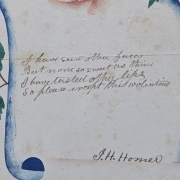 I have seen other faces
But none so sweet as thine
I have tasted other lips
So please accept this valentine
J. H. Homer